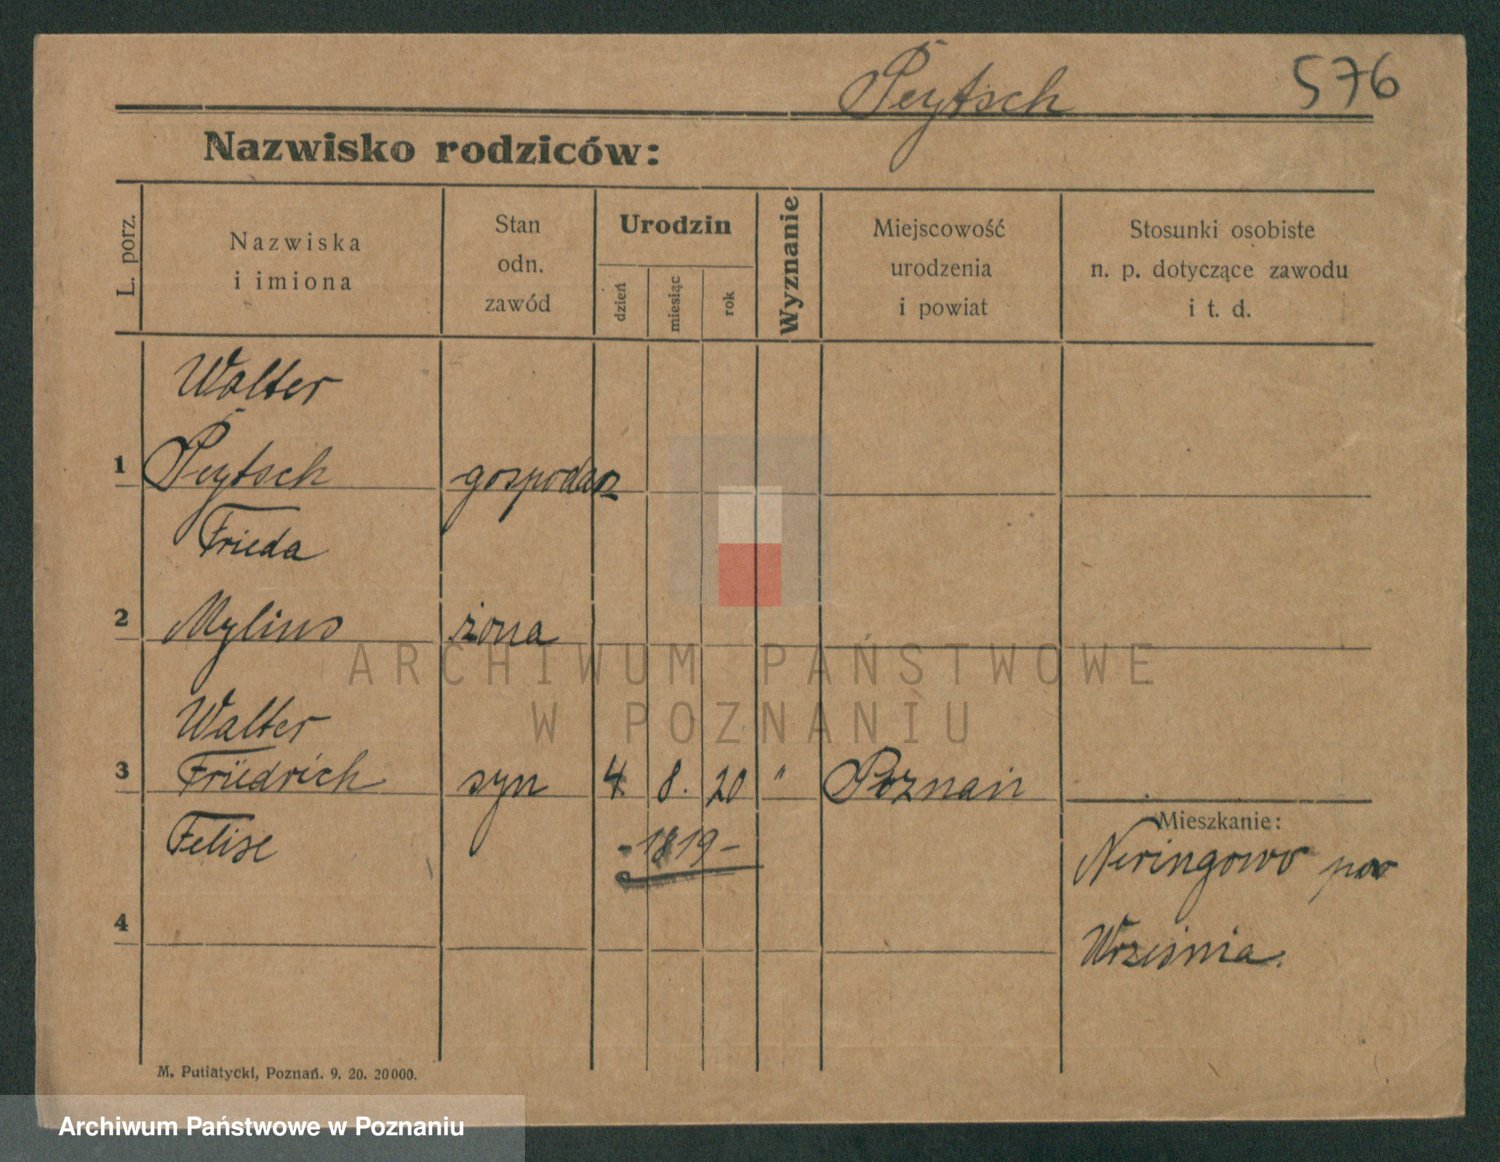 Peytsch
576
Nazwisko rodziców:
L. porz.
Nazwiska
i imiona
Stan
odn.
zawód
Urodzin
dzień
miesiąc
rok
Wyznanie
Miejscowość
urodzenia
i powiat
Stosunki osobiste
n. p. dotyczące zawodu
i t. d.
Walter
1 Peytsch gospodarz
Frieda
2 Mylius żona
ARCHIWUM PAŃSTWOWE
W POZNANIU
Walter
3 Friedrich syn 4. 8. 20 " Poznań
Felise
- 1819 -
Mieszkanie:
Neringowo pow
Września.
4
M. Putiatycki, Poznań. 9. 20. 20000.
Archiwum Państwowe w Poznaniu